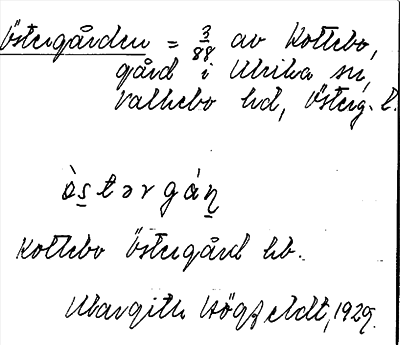 Östergården = 3/88 av Kottebo,
gård i Ulrika sn,
Valkebo hd, Österg. l.
ò̀s̲tərgán̲
Kottebo Östergård hb.
Margith Högfeldt, 1929.